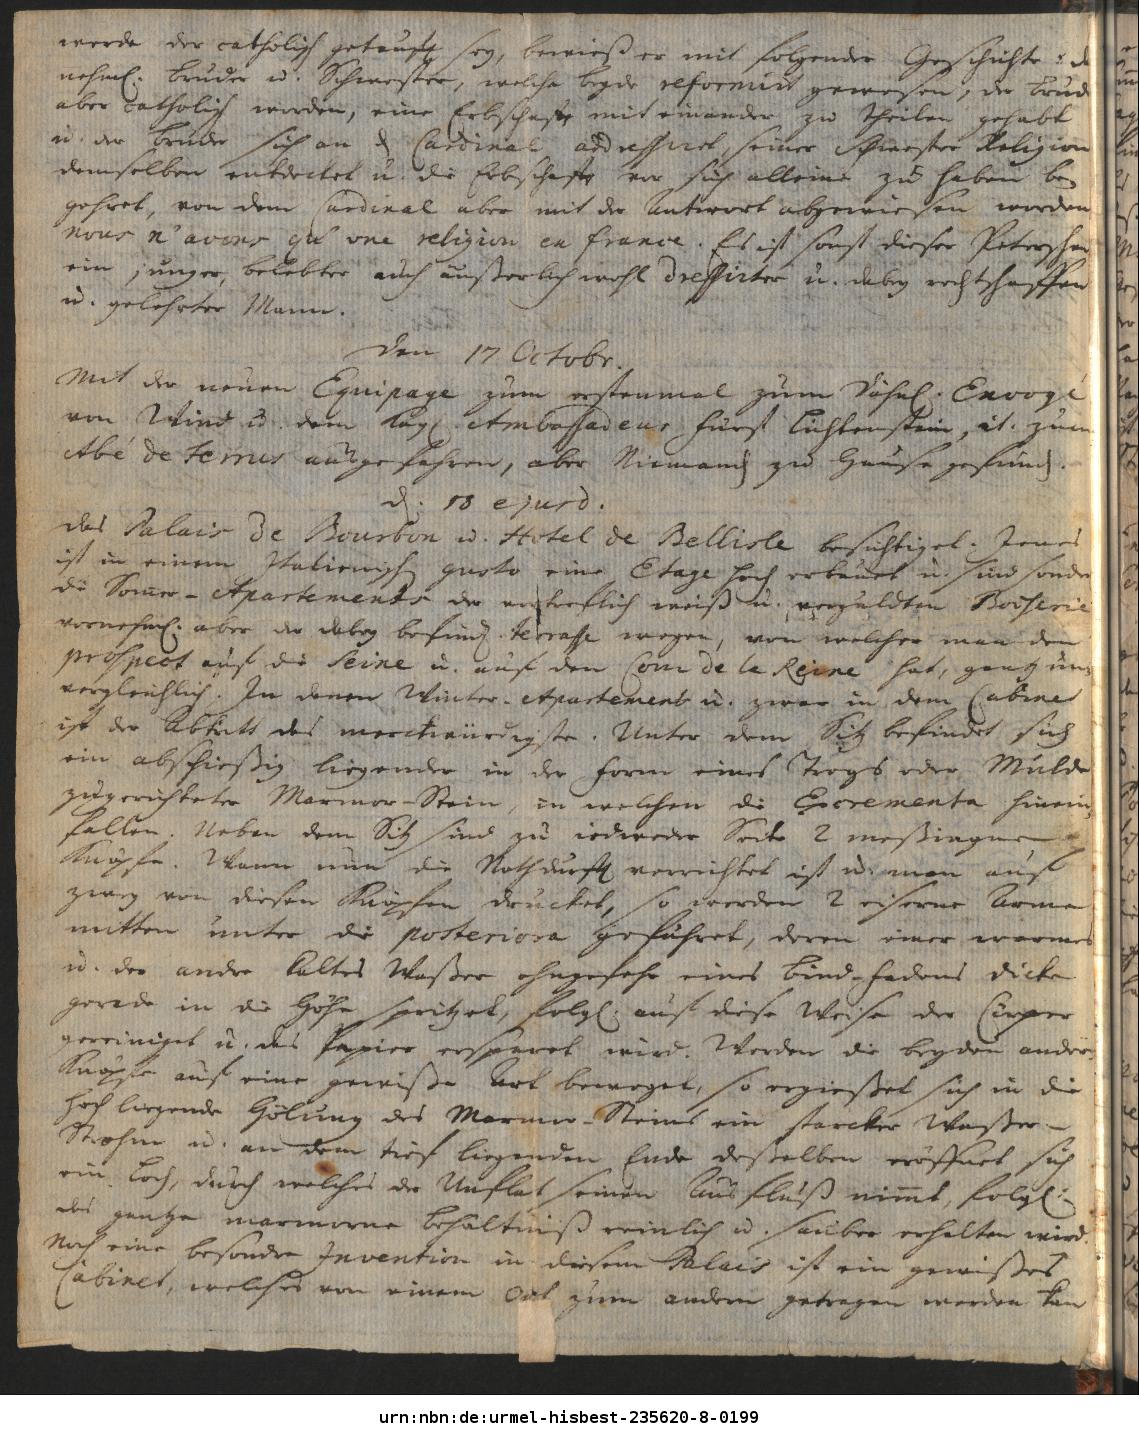 werde der catholisch getaufft sey, bewieß er mit folgender Geschichte: da
nehml. Bruder u. Schwester, welche beyde reformirt gewesen, der Brud
aber catholisch worden, eine Erbschafft miteinander zu theilen gehabt
u. der Bruder sich an d. Cardinal addressiret, seiner Schwester Religion
demselben entdecket u. die Erbschafft vor sich alleine zu haben be-
gehret, von dem Cardinal aber mit der Antwort abgewiesen worden
nous n'avons qu'une religion en france. Es ist sonst dieser Petersohn
ein junger, belebter auch äußerlich wohl dressirter u. dabey rechtschaffen
u. gelehrter Mann.
Den 17 Octobr.
Mit der neuen Equipage zum erstenmal zum Dähnl. Envoyé
von Wind u. dem Kayl. Ambassadeur Fürst Lichtenstein, it. zum
Abé de Ferrus ausgefahren, aber Niemand zu Hause gefund.
d. 18 ejusd.
das Palais de Bourbon u. Hotel de Bellisle besichtiget. Jenes
ist in einem Italienisch gusto eine Etage hoch erbauet u. sind sonder
die Sommer-Apartements der vortreflich weiß u. verguldten Boiserie
vornehml. aber der dabey befind. terrasse wegen, von welcher man den
prospect auf die Seine u. auf den Cour de la Reine hat, gantz un-
vergleichlich. In denen Winter-Apartements u. zwar in dem Cabinet
ist der Abtritt das merckwürdigste. Unter dem Sitz befindet sich
ein abschießig liegender in der Form eines Trogs oder Mulde
zugerichteter Marmor-Stein, in welchen die Excrementa hinein-
fallen. Neben dem Sitz sind zu iedweder Seite 2 meßingne
Knöpfe. Wann nun die Nothdurfft verrichtet ist u. man auf
zwey von diesen Knöpfen drucket, so werden 2 eiserne Arme
mitten unter die posteriora geführet, deren einer warmes
u. der andre kaltes Waßer ohngefehr eines Bind-Fadens dicke
gerade in die Höhe spritzet, folgl. auf diese Weise der Cörper
gereiniget u. das Papier ersparet wird. Werden die beyden andern
Knöpfe auf eine gewiße Art beweget, so ergießet sich in die
hoch liegende Hölung des Marmor-Steins ein starcker Waßer-
Strohm u. an dem tief liegenden Ende desselben eröffnet sich
ein Loch, durch welches der Unflat seinen Ausfluß nimmt, folgl.
das gantze marmorne Behältniß reinlich u. sauber erhalten wird.
Noch eine besondre Invention in diesem Palais ist ein gewißes
Cabinet, welches von einem Ort zum andern getragen werden kan
urn:nbn:de:urmel-hisbest-235620-8-0199